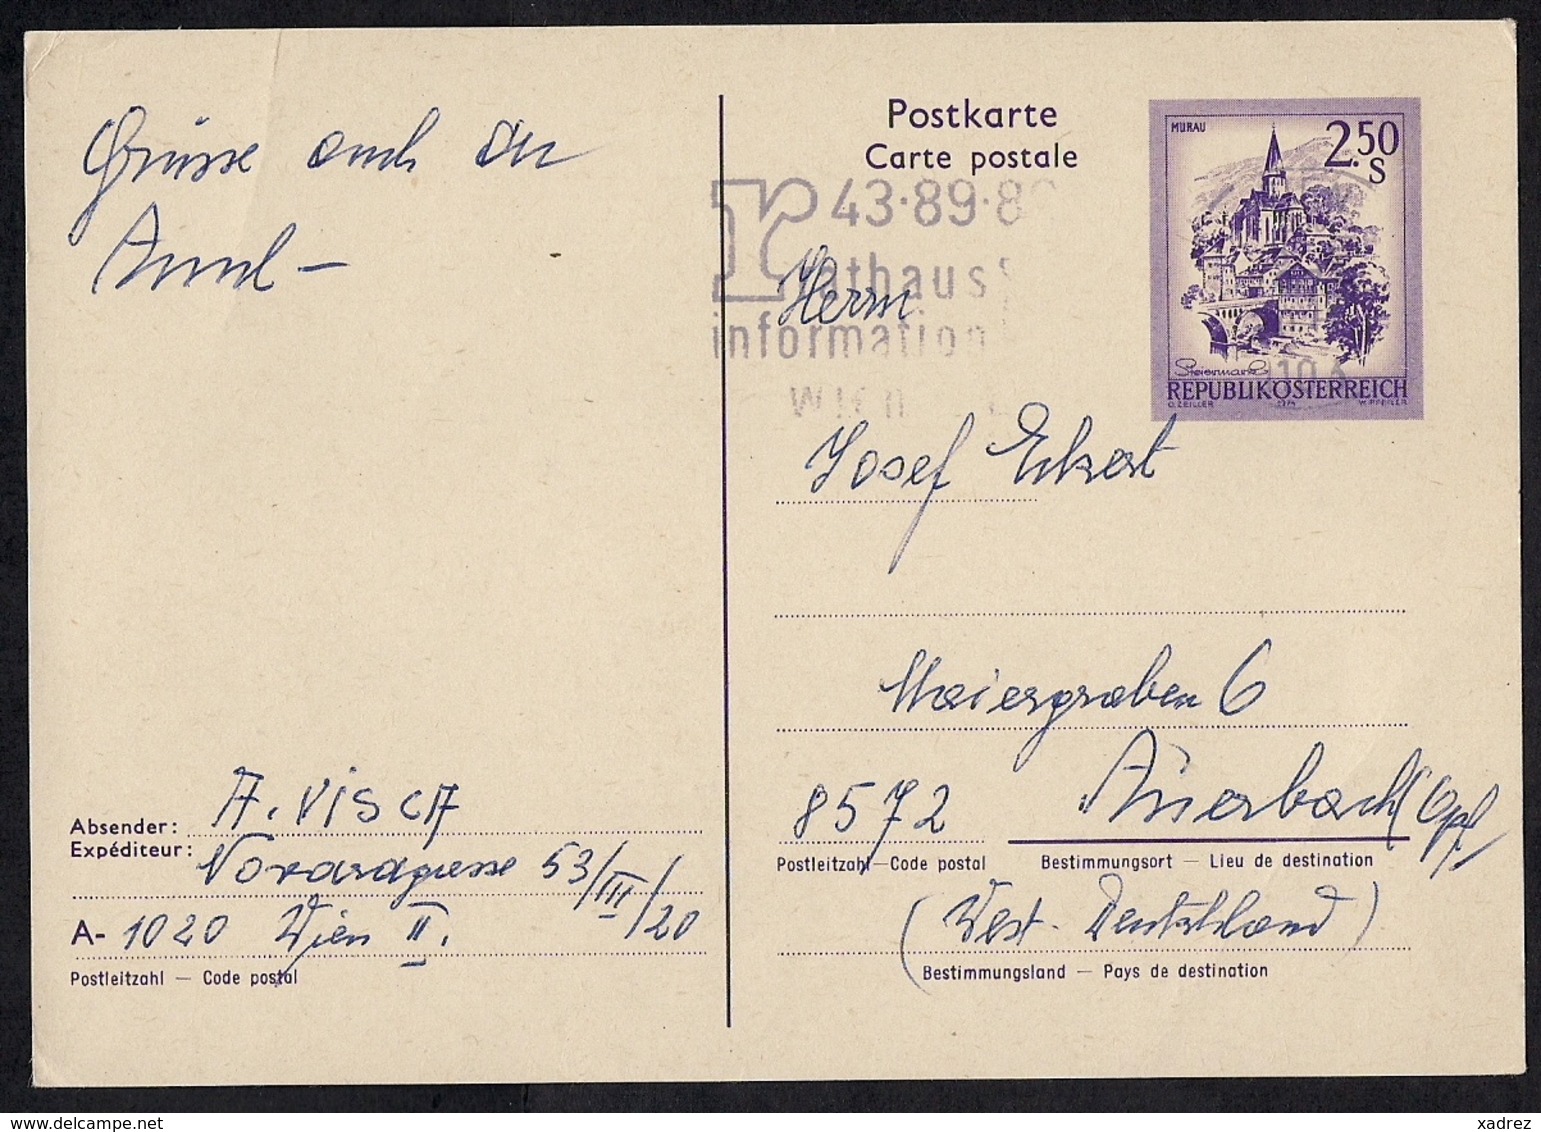 Grüsse auch an
Postkarte
Carte postale
MURAU
2.50
S
43·89·8
rathaus
information
WIEN
Steiermark
REPUBLIK ÖSTERREICH
O. ZEILLER 1974 W. PFEILER
Herrn
Josef Eckert
Maiergraben 6
8572 Auerbach (Opf.
Postleitzahl — Code postal
Bestimmungsort — Lieu de destination
(West-Deutschland)
Bestimmungsland — Pays de destination
Absender:
Expéditeur:
A. VISCA
53/III/20
A- 1020 Wien II.
Postleitzahl — Code postal
www.delcampe.net
xadrez